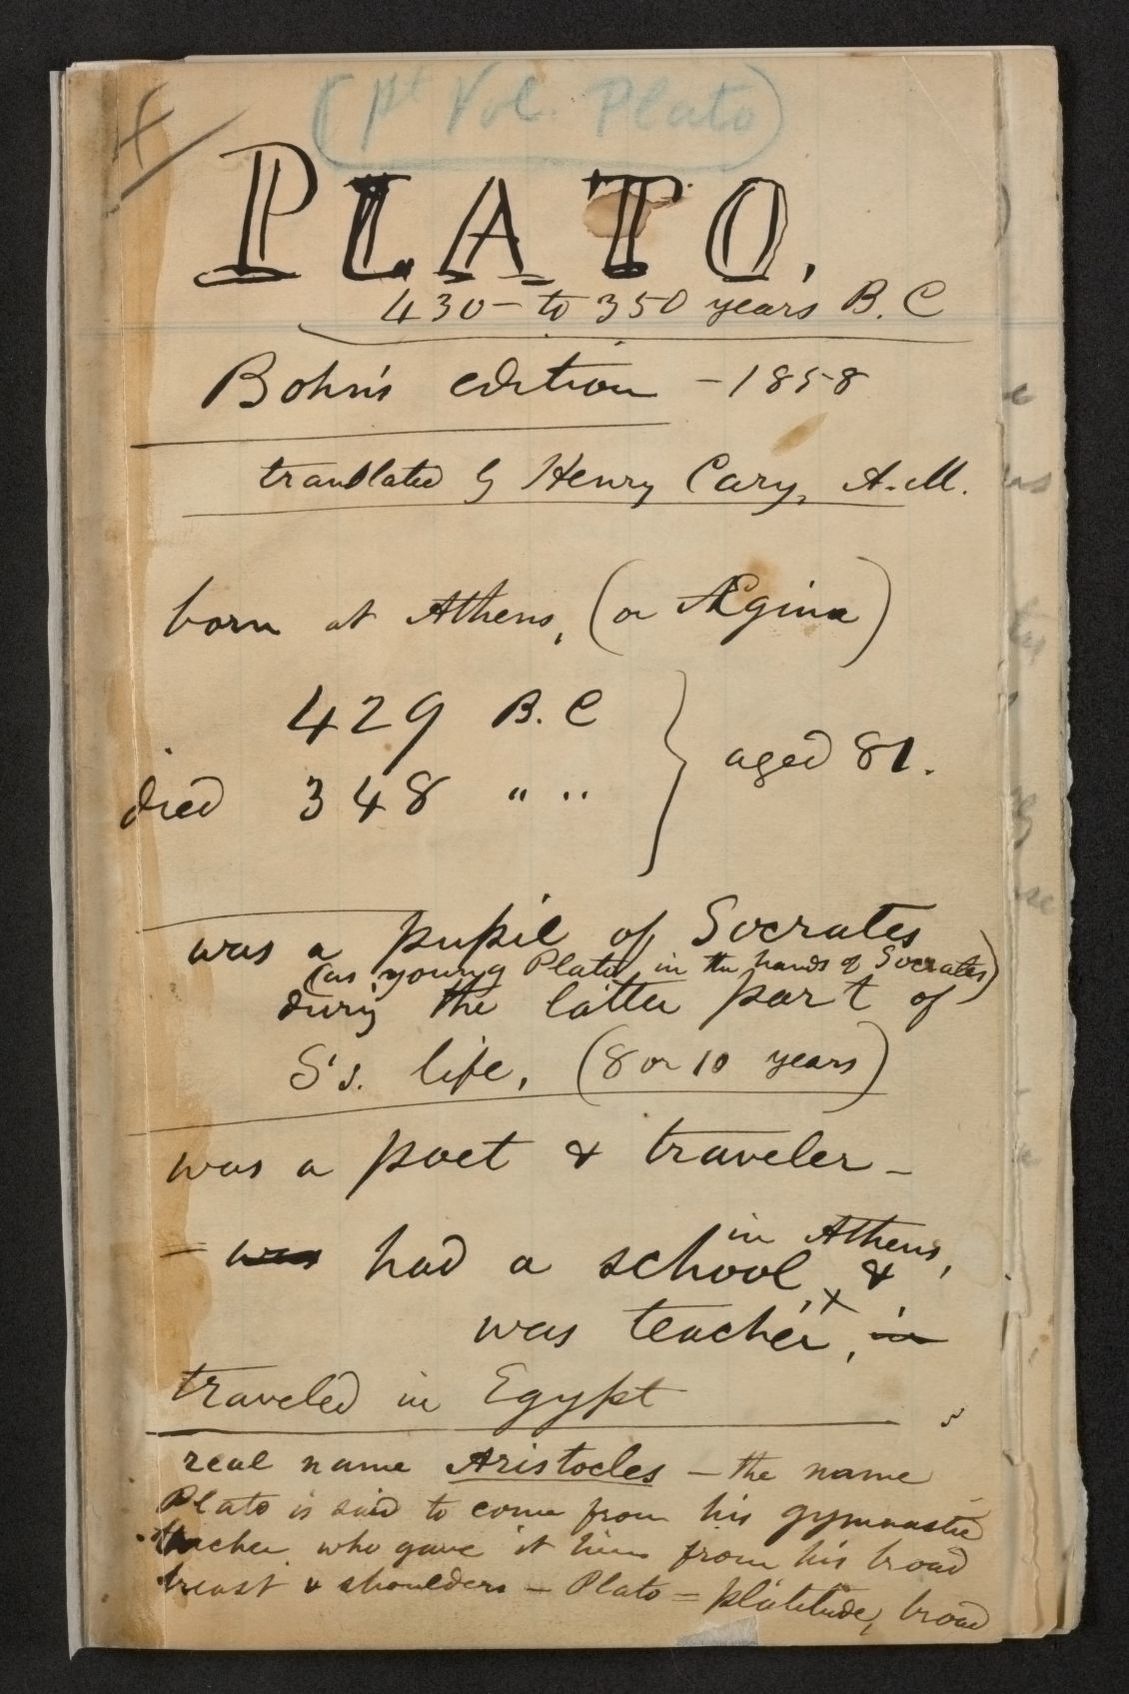 (1st Vol. Plato)
PLATO.
430 – to 350 years B. C
Bohn's edition – 1858
translated by Henry Cary, A. M.
born at Athens, (or Ægina)
429 B. C
aged 81.
died 348 " "
was a pupil of Socrates
(as young Plato, in the hands of Socrates)
during the latter part of
S's. life, (8 or 10 years)
was a poet & traveler –
in Athens,
= was had a school, &
was teacher, in
traveled in Egypt
real name Aristocles – the name
Plato is said to come from his gymnastic
teacher who gave it him from his broad
breast & shoulders – Plato = platitude, broad